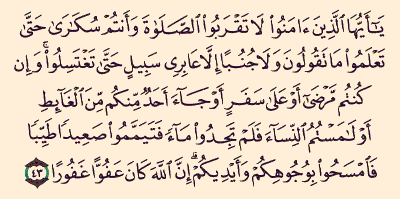 يَـٰٓأَيُّهَا ٱلَّذِينَ ءَامَنُوا۟ لَا تَقْرَبُوا۟ ٱلصَّلَوٰةَ وَأَنتُمْ سُكَـٰرَىٰ حَتَّىٰ
تَعْلَمُوا۟ مَا تَقُولُونَ وَلَا جُنُبًا إِلَّا عَابِرِى سَبِيلٍ حَتَّىٰ تَغْتَسِلُوا۟ ۚ وَإِن
كُنتُم مَّرْضَىٰٓ أَوْ عَلَىٰ سَفَرٍ أَوْ جَآءَ أَحَدٌ مِّنكُم مِّنَ ٱلْغَآئِطِ
أَوْ لَـٰمَسْتُمُ ٱلنِّسَآءَ فَلَمْ تَجِدُوا۟ مَآءً فَتَيَمَّمُوا۟ صَعِيدًا طَيِّبًا
فَٱمْسَحُوا۟ بِوُجُوهِكُمْ وَأَيْدِيكُمْ ۗ إِنَّ ٱللَّهَ كَانَ عَفُوًّا غَفُورًا ٤٣